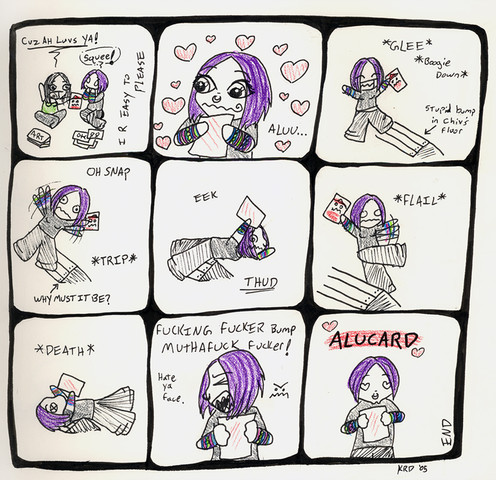 Cuz Ah Luvs Ya!
Squee!
I R EASY TO
PLEASE
ART
ALUU...
*GLEE*
*Boogie
Down*
Stupid bump
in Chiv's
Floor
OH SNAP
*TRIP*
WHY MUST IT BE?
EEK
THUD
*FLAIL*
*DEATH*
FUCKING FUCKER Bump
MUTHAFUCK FUCKER!
Hate
ya
Face.
ALUCARD
END
KRD '05